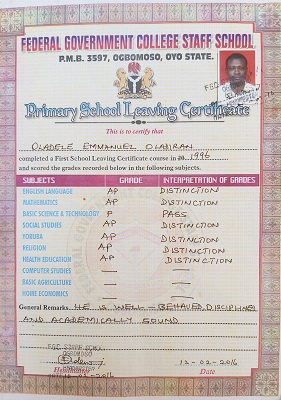 FEDERAL GOVERNMENT COLLEGE STAFF SCHOOL
P.M.B. 3597, OGBOMOSO, OYO STATE.
Primary School Leaving Certificate
This is to certify that
OLADELE EMMANUEL OLABIRAN
completed a First School Leaving Certificate course in 20 1996
and scored the grades recorded below in the following subjects.
SUBJECTS GRADE INTERPRETATION OF GRADES
ENGLISH LANGUAGE AP DISTINCTION
MATHEMATICS AP DISTINCTION
BASIC SCIENCE & TECHNOLOGY P PASS
SOCIAL STUDIES AP DISTINCTION
YORUBA AP DISTINCTION
RELIGION AP DISTINCTION
HEALTH EDUCATION AP DISTINCTION
COMPUTER STUDIES — —
BASIC AGRICULTURE — —
HOME ECONOMICS
General Remarks HE IS WELL-BEHAVED, DISCIPLINED
AND ACADEMICALLY SOUND
FGC STAFF SCHOOL
OGBOMOSO
12-02-2016
Headmaster Date